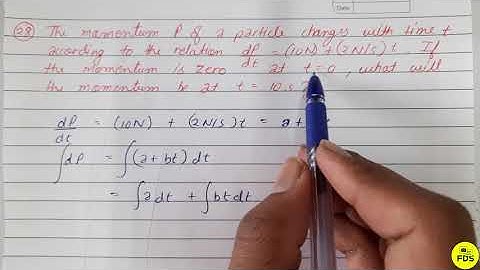 Date:
(28) The momentum P of a particle changes with time t
according to the relation dP/dt = (10N) + (2N/s) t. If
the momentum is zero at t=0, what will
the momentum be at t = 10 s
dP/dt = (10N) + (2N/s) t = a +
∫dP = ∫(a + bt) dt
= ∫a dt + ∫bt dt
FDS